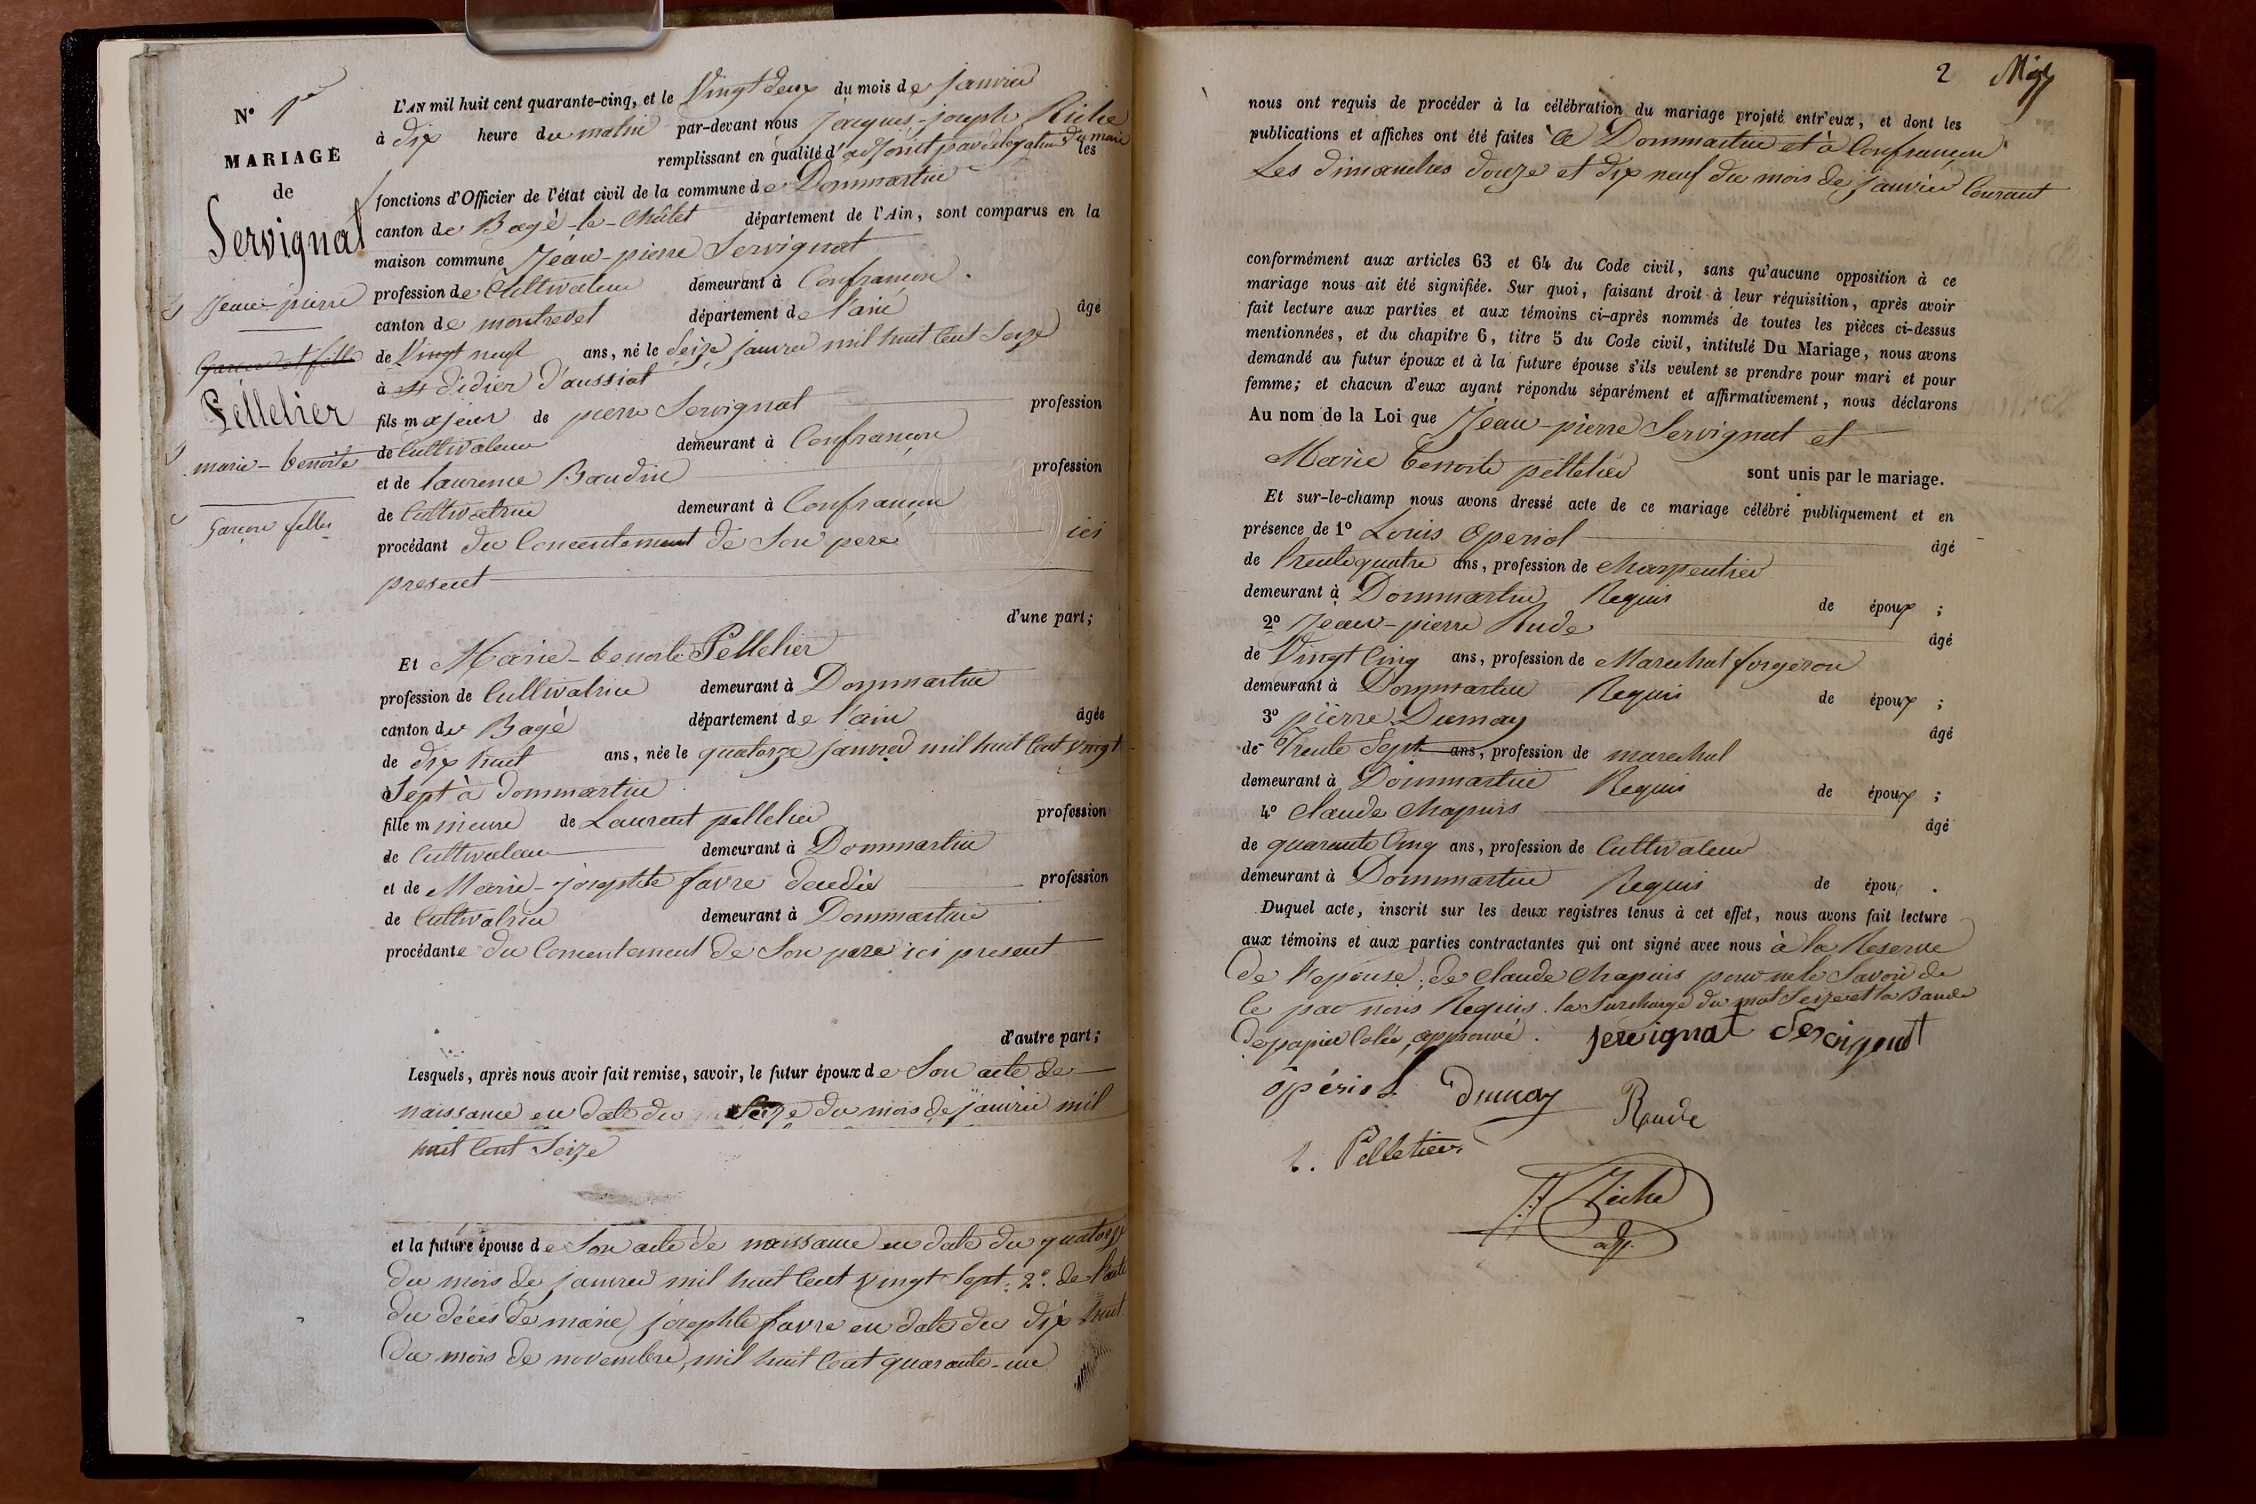 N° 1er
MARIAGE
de
Servignat
Jean-pierre
garçon et fille
Pelletier
marie-benoite
garçon fille
L'AN mil huit cent quarante-cinq, et le Vingt deux du mois de janvier
à dix heure du matin par-devant nous Jacques-joseph Riche
remplissant en qualité d'adjoint par délégation du maire les
fonctions d'Officier de l'état civil de la commune de Dommartin
canton de Bagé-le-châtel département de l'Ain, sont comparus en la
maison commune Jean-pierre Servignat
profession de Cultivateur demeurant à Confrançon.
canton de montrevel département de l'ain âgé
de Vingt neuf ans, né le Seize janvier mil huit Cent Seize
à St didier d'aussiat
fils majeur de pierre Servignat profession
de Cultivateur demeurant à Confrançon
et de laurence Baudin profession
de Cultivatrice demeurant à Confrançon
procédant du Concentement de Son pere ici
present
d'une part;
Et Marie-benoite Pelletier
profession de Cultivatrice demeurant à Dommartin
canton de Bagé département de l'ain âgée
de dix huit ans, née le quatorze janvier mil huit Cent vingt
Sept à dommartin
fille mineure de Laurent pelletier profession
de Cultivateur demeurant à Dommartin
et de Marie-josephte favre profession
de Cultivatrice demeurant à Dommartin
procédante du Concentement de Son pere ici present
d'autre part;
Lesquels, après nous avoir fait remise, savoir, le futur époux de Son acte de
naissance en date du Seize du mois de janvier mil
huit Cent Seize
et la future épouse de Son acte de naissance en date du quatorze
du mois de janvier mil huit Cent vingt Sept; 2° de l'acte
du décès de marie josephte favre en date du dix huit
du mois de novembre, mil huit Cent quarante-un
2
nous ont requis de procéder à la célébration du mariage projeté entr'eux, et dont les
publications et affiches ont été faites a Dommartin et à Confrançon
Les dimanches douze et dix neuf du mois de janvier Courant
conformément aux articles 63 et 64 du Code civil, sans qu'aucune opposition à ce
mariage nous ait été signifiée. Sur quoi, faisant droit à leur réquisition, après avoir
fait lecture aux parties et aux témoins ci-après nommés de toutes les pièces ci-dessus
mentionnées, et du chapitre 6, titre 5 du Code civil, intitulé Du Mariage, nous avons
demandé au futur époux et à la future épouse s'ils veulent se prendre pour mari et pour
femme; et chacun d'eux ayant répondu séparément et affirmativement, nous déclarons
Au nom de la Loi que Jean-pierre Servignat et
Marie benoite pelletier sont unis par le mariage.
Et sur-le-champ nous avons dressé acte de ce mariage célébré publiquement et en
présence de 1° Louis Operiol âgé
de Trente quatre ans, profession de charpentier
demeurant à Dommartin Requis de époux;
2° Jean-pierre Rude âgé
de Vingt Cinq ans, profession de Marechal forgeron
demeurant à Dommartin Requis de époux;
3° pierre Dumay âgé
de Trente Sept ans, profession de marechal
demeurant à Dommartin Requis de époux;
4° Claude Chapuis âgé
de quarante Cinq ans, profession de Cultivateur
demeurant à Dommartin Requis de épou .
Duquel acte, inscrit sur les deux registres tenus à cet effet, nous avons fait lecture
aux témoins et aux parties contractantes qui ont signé avec nous à la Reserve
de l'epouse, de Claude Chapuis pour ne le Savoir de
ce par nous Requis. la Surcharge du mot Seize et la Bande
de papier Colée, approuvé. servignat Servignat
opériol Dumay Rude
L. Pelletier
JJ Riche
adj.